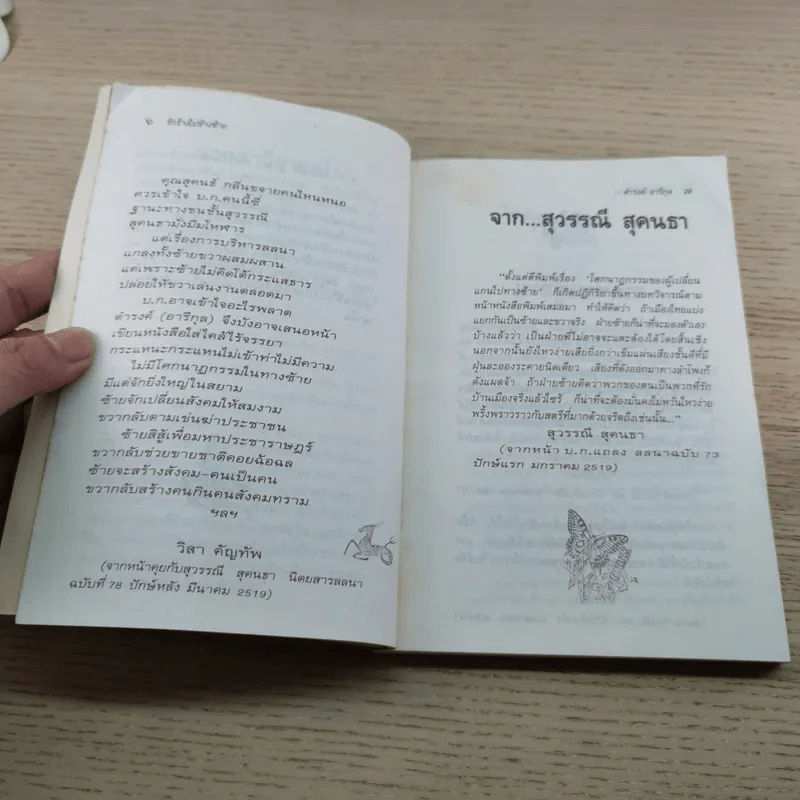 ๖ รักร้างไปข้างซ้าย
คุณสุคนธ์ กลิ่นขจายคนไหนหนอ
ควรเข้าใจ บ.ก.คนนี้ซี
ฐานะทางชนชั้นสุวรรณี
สุคนธามั่งมีมโหฬาร
แต่เรื่องการบริหารลลนา
แกลงทั้งซ้ายขวาผสมผสาน
แต่เพราะซ้ายไม่คิดโต้กระแสธาร
ปล่อยให้ขวาเล่นงานตลอดมา
บ.ก.อาจเข้าใจอะไรพลาด
ดำรงค์ (อารีกุล) จึงบังอาจเสนอหน้า
เขียนหนังสือใส่ไคล้ไร้จรรยา
กระแหนะกระแหนไม่เข้าท่าไม่มีความ
ไม่มีโศกนาฏกรรมในทางซ้าย
มีแต่จักยิ่งใหญ่ในสยาม
ซ้ายจักเปลี่ยนสังคมให้สมงาม
ขวากลับตามเข่นฆ่าประชาชน
ซ้ายสิสู้เพื่อมหาประชาราษฎร์
ขวากลับช่วยขายชาติคอยฉ้อฉล
ซ้ายจะสร้างสังคม-คนเป็นคน
ขวากลับสร้างคนกินคนสังคมทราม
ฯลฯ
วิสา คัญทัพ
(จากหน้าคุยกับสุวรรณี สุคนธา นิตยสารลลนา
ฉบับที่ 78 ปักษ์หลัง มีนาคม 2519)
ดำรงค์ อารีกุล
จาก...สุวรรณี สุคนธา
“ตั้งแต่ตีพิมพ์เรื่อง 'โศกนาฏกรรมของผู้เปลี่ยน
แกนไปทางซ้าย' ก็เกิดปฏิกิริยาขึ้นทางบทวิจารณ์ตาม
หน้าหนังสือพิมพ์เสมอมา ทำให้คิดว่า ถ้าเมืองไทยแบ่ง
แยกกันเป็นซ้ายและขวาจริง ฝ่ายซ้ายก็น่าที่จะมองตัวเอง
บ้างแล้วว่า เป็นฝ่ายที่ไม่อาจจะแตะต้องได้โดยสิ้นเชิง
นอกจากนั้นยังไหวง่ายเสียยิ่งกว่าเข็มแผ่นเสียงชั้นดีที่มี
ฝุ่นละอองระคายนิดเดียว เสียงที่ดังออกมาทางลำโพงก็
ดังแผดจ้า ถ้าฝ่ายซ้ายคิดว่าพวกของตนเป็นพวกที่รัก
บ้านเมืองจริงแล้วไซร้ ก็น่าที่จะต้องมั่นคงไม่หวั่นไหวง่าย
พริ้งพราวราวกับสตรีที่มากด้วยจริตถึงเช่นนั้น...”
สุวรรณี สุคนธา
(จากหน้า บ.ก.แถลง ลลนาฉบับ 73
ปักษ์แรก มกราคม 2519)